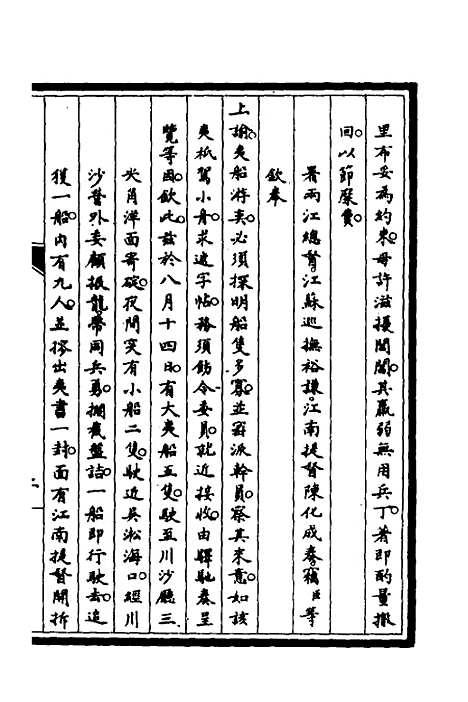 里布妥為約束毋許滋擾閭閻其羸弱無用兵丁著即酌量撤
回以節糜費
署兩江總督江蘇巡撫裕謙江南提督陳化成奏竊臣等
欽奉
上諭夷船游奕必須探明船隻多寡並密派幹員察其來意如該
夷衹駕小舟求遞字帖務須飭令委員就近接收由驛馳奏呈
覽等因欽此茲於八月十四日有大夷船五隻駛至川沙廳三
尖角洋面寄碇夜間突有小船二隻駛近吳淞海口經川
沙營外委顧振龍帶同兵勇攔截盤詰一船即行駛去追
獲一船內有九人並撈出夷書一封面有江南提督開拆